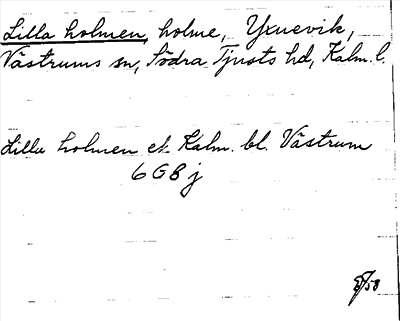 Lilla holmen, holme, Yxnevik,
Västrums sn, Södra Tjusts hd, Kalm. l.
Lilla holmen ek Kalm. bl. Västrum
6 G 8 j
/58